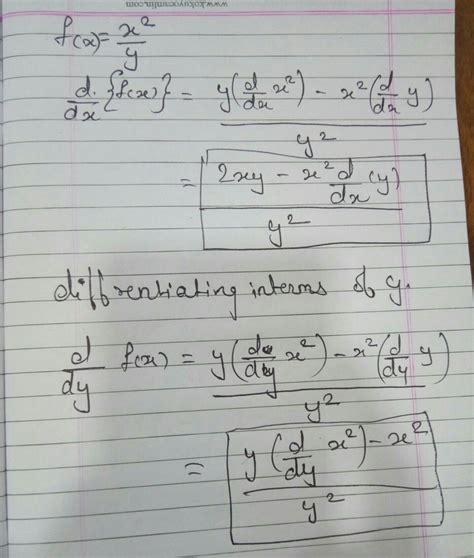 www.kokuyocamlin.com
f(x) = x²/y
d/dx {f(x)} = (y(d/dx x²) - x²(d/dx y))/y²
= (2xy - x² d/dx (y))/y²
diffrentiating interms of y.
d/dy f(x) = (y(d/dy x²) - x²(d/dy y))/y²
= (y(d/dy x²) - x²)/y²